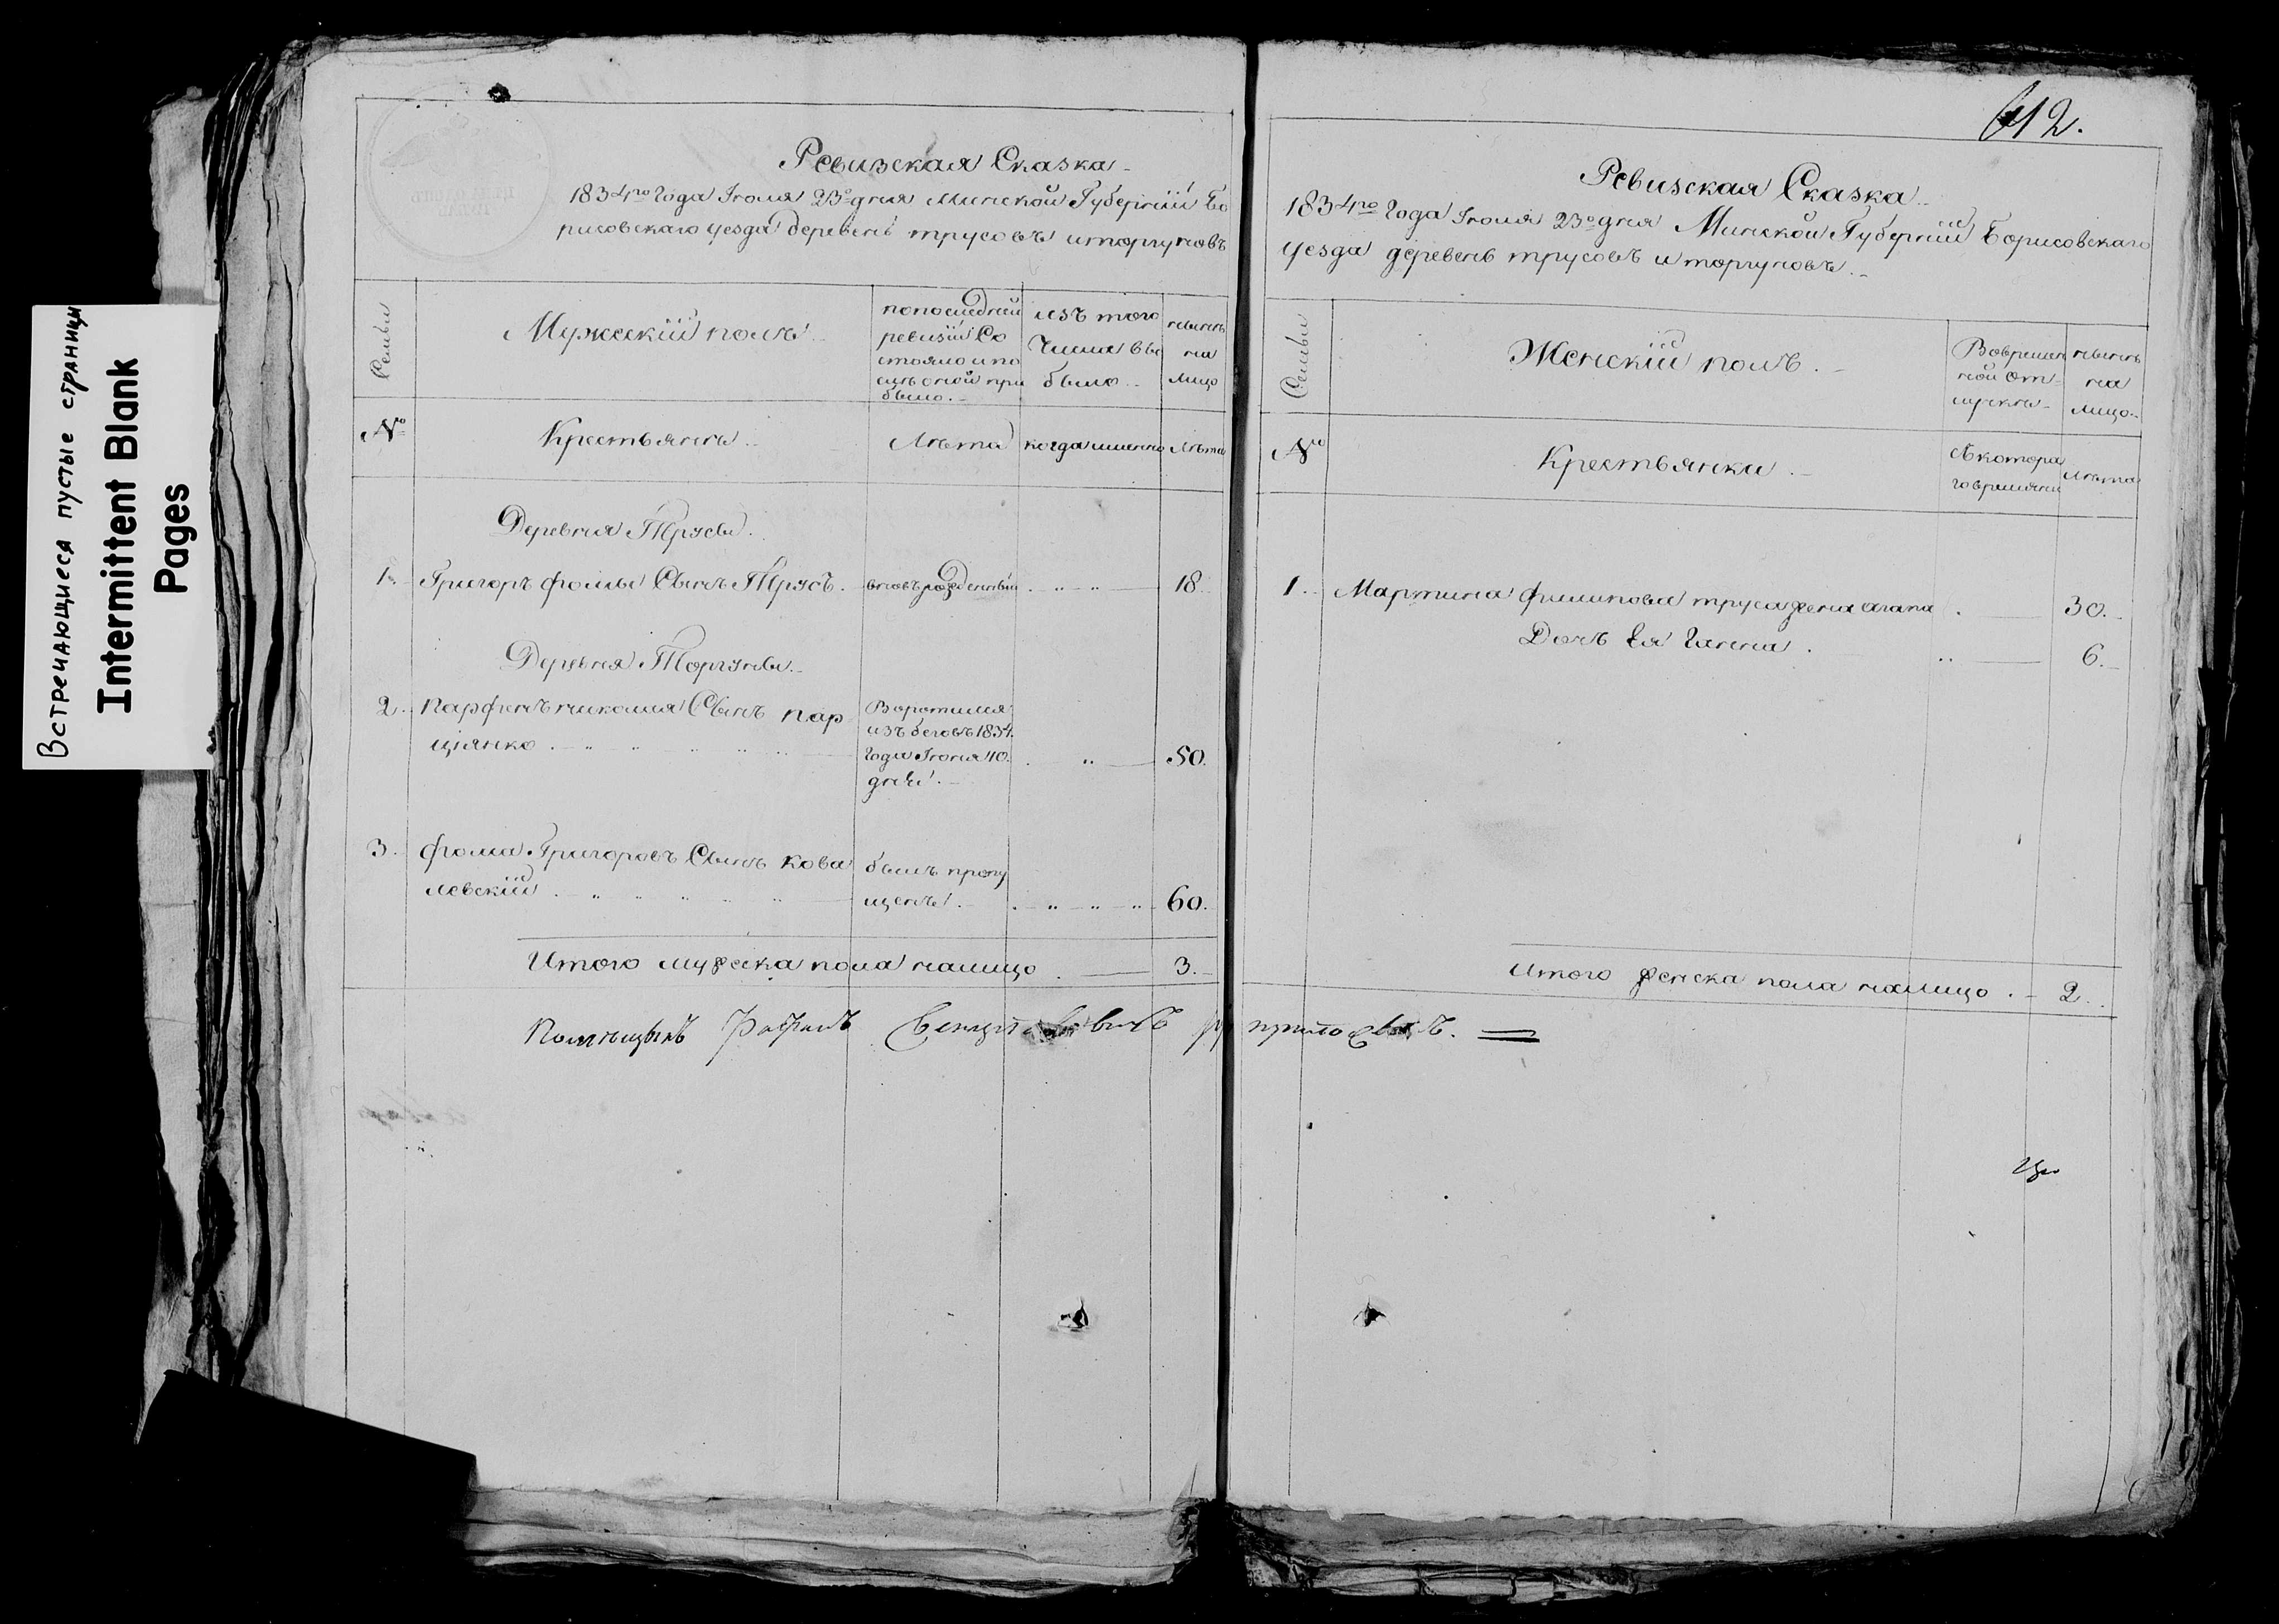 Встречающиеся пустые страницы
Intermittent Blank
Pages
Ревизская Сказка
1834го Года Июля 23о дня Минской Губернии Бо
рисовскаго уезда деревень трусовъ и торгуновъ
Семьи
Мужеский полъ
по последней
ревизии Со
стояло и по
сле оной при
было.
изъ того
Числа вы
было
ныне
на
лицо
№
Крестьяне
Лета
когда именно
Лета
Деревня Трусы.
1. Григоръ фомы Сынъ Трусъ. вновь рожденный 18
Деревня Торгуны.
2. Парфенъ николая Сынъ пар
цянко
Воротился
изъ беговъ 1834.
Года Июня 10.
дня.
50.
3. фома Григоровъ Сынъ кова
левский
былъ пропу
щенъ.
60.
Итого мужеска пола налицо 3.
612.
Ревизская Сказка
1834го Года Июля 23о дня Минской Губернии Борисовскаго
уезда деревень трусовъ и торгуновъ.
Семьи
Женский полъ.
Во времен
ной от
лучке
ныне
на
лицо
№
Крестьянки.
съ котора
го времени
Лета
1. Мартина филипова труса жена агапа 30.
Дочь Ея Ганна. 6.
Итого женска пола налицо 2.
Помещикъ Рафалъ
приложилъ.